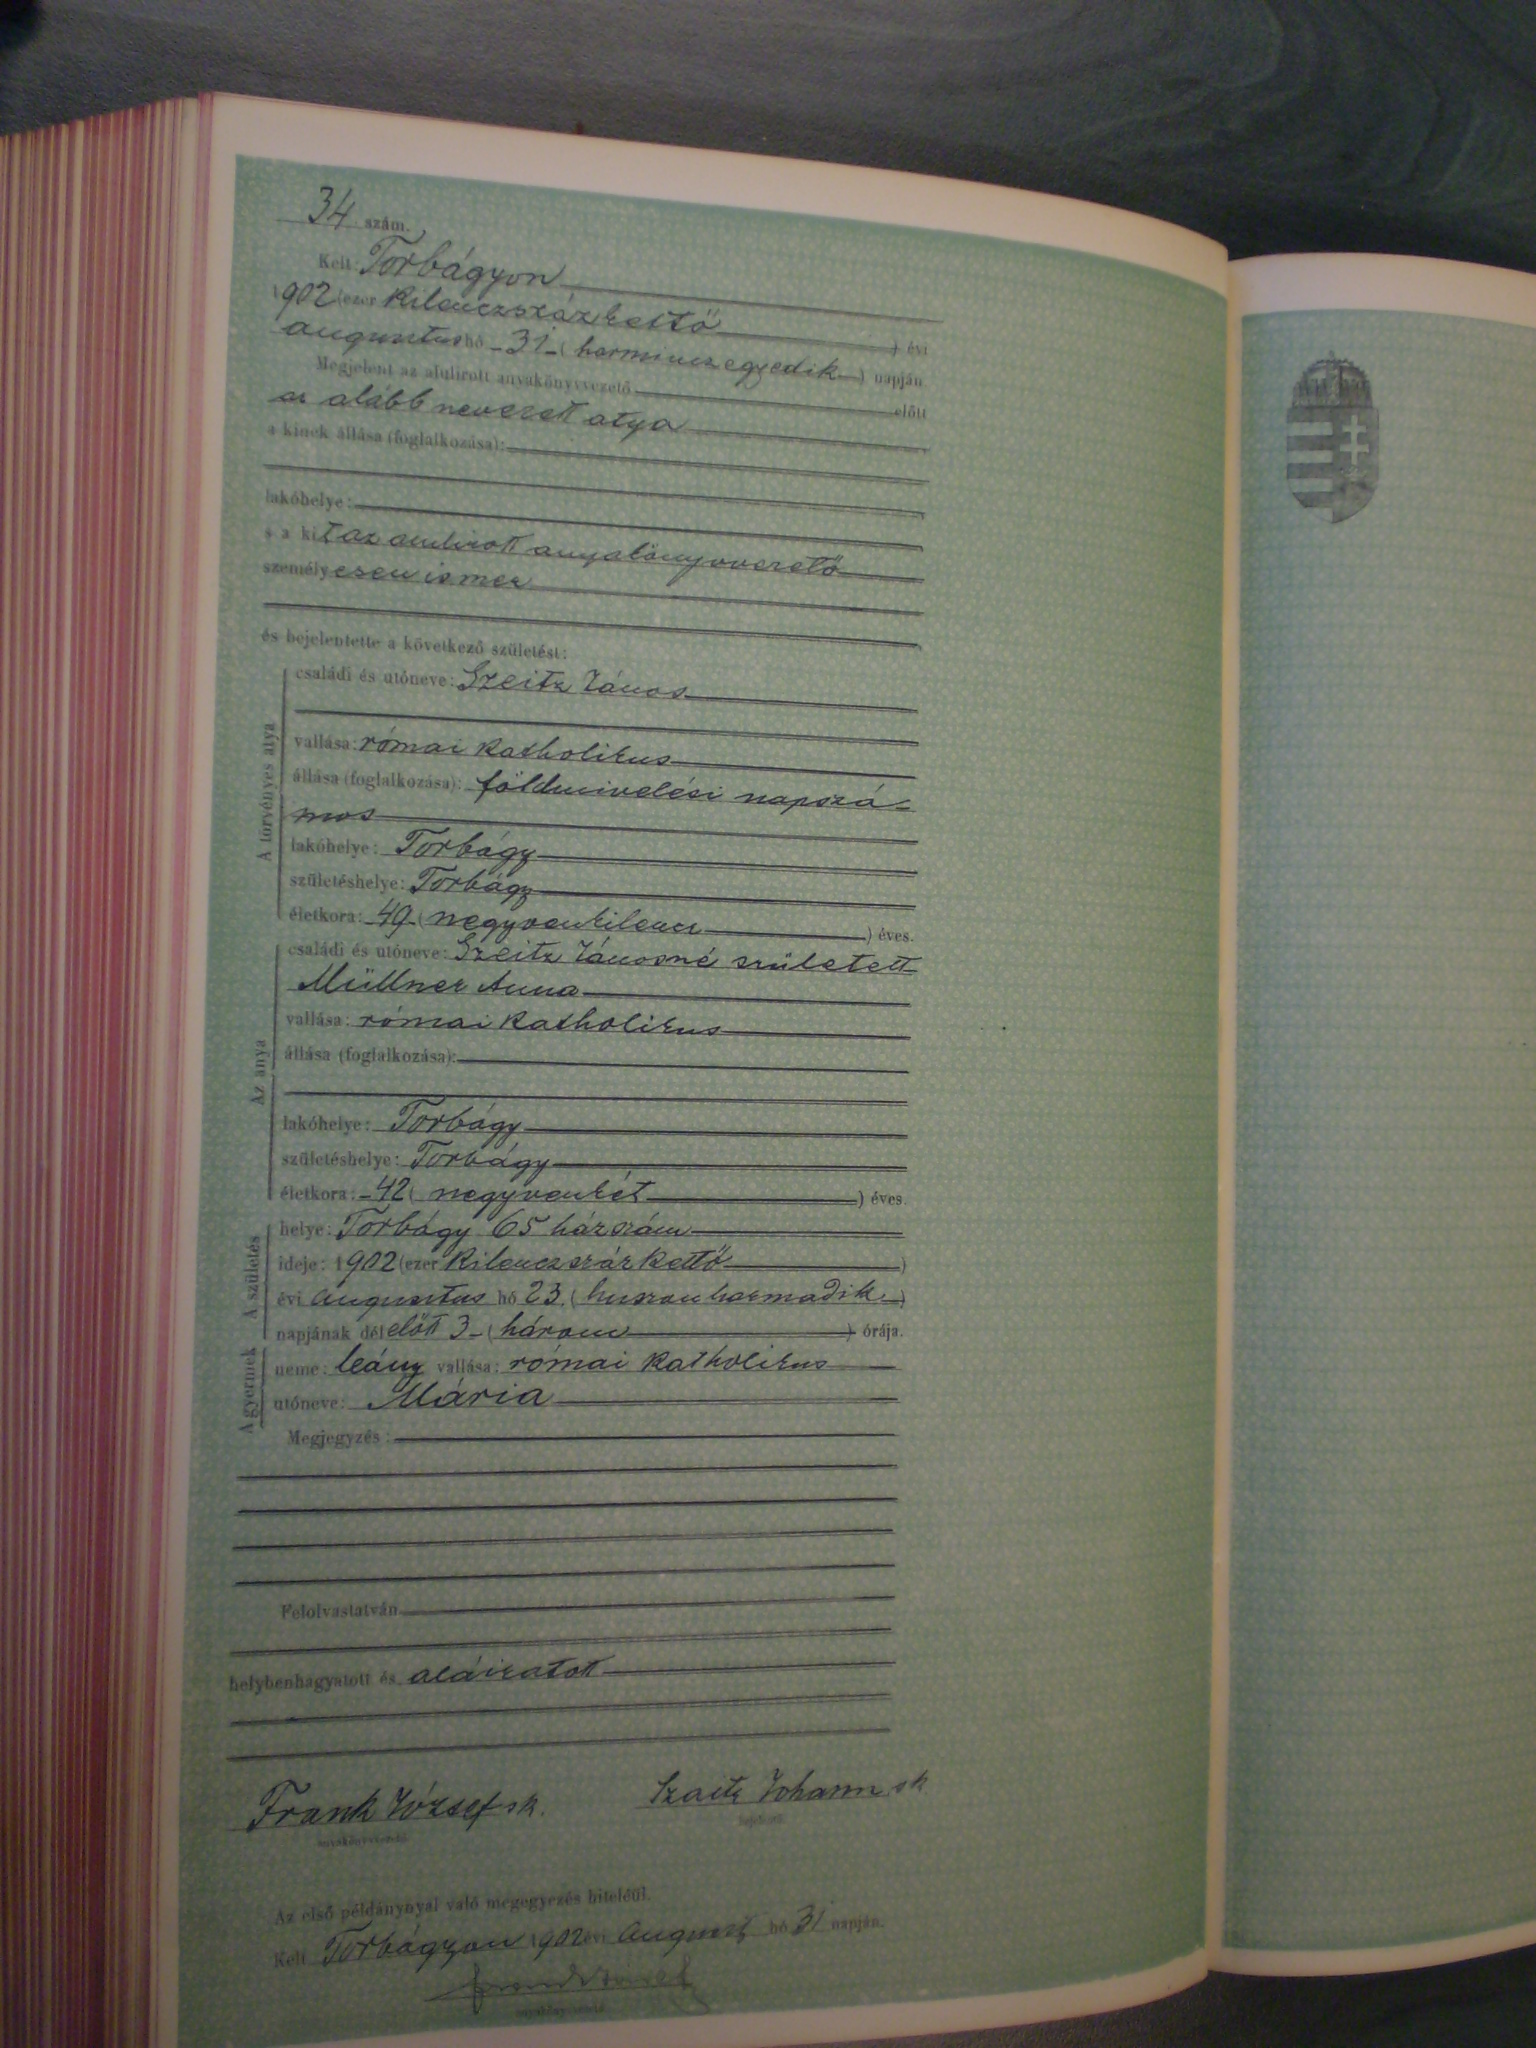 34 szám.
Kelt: Torbágyon
1902 (ezer kilenczszázkettő ) évi
augusztus hó 31 ( harminczegyedik ) napján
Megjelent az alulirott anyakönyvvezető előtt
az alább nevezett atya
a kinek állása (foglalkozása):
lakóhelye:
s a kit az alulirott anyakönyvvezető
személyesen ismer
és bejelentette a következő születést:
A törvényes atya
családi és utóneve: Szeitz János
vallása: római katholikus
állása (foglalkozása): földmivelési napszá-
mos
lakóhelye: Torbágy
születéshelye: Torbágy
életkora: 49 ( negyvenkilencz ) éves.
Az anya
családi és utóneve: Szeitz Jánosné született
Müllner Anna
vallása: római katholikus
állása (foglalkozása):
lakóhelye: Torbágy
születéshelye: Torbágy
életkora: 42 ( negyvenkét ) éves.
A születés
helye: Torbágy 65 házszám
ideje: 1902 (ezer kilenczszázkettő )
évi augusztus hó 23. ( huszonharmadik )
napjának délelőtt 3 ( három ) órája.
A gyermek
neme: leány vallása: római katholikus
utóneve: Mária
Megjegyzés:
Felolvastatván
helybenhagyatott és aláiratott
Frank József sk. Szaitz Johann sk
anyakönyvvezető
Az első példánynyal való megegyezés hiteléül.
Kelt Torbágyon 1902 évi august hó 31 napján.
Frank József
anyakönyvvezető